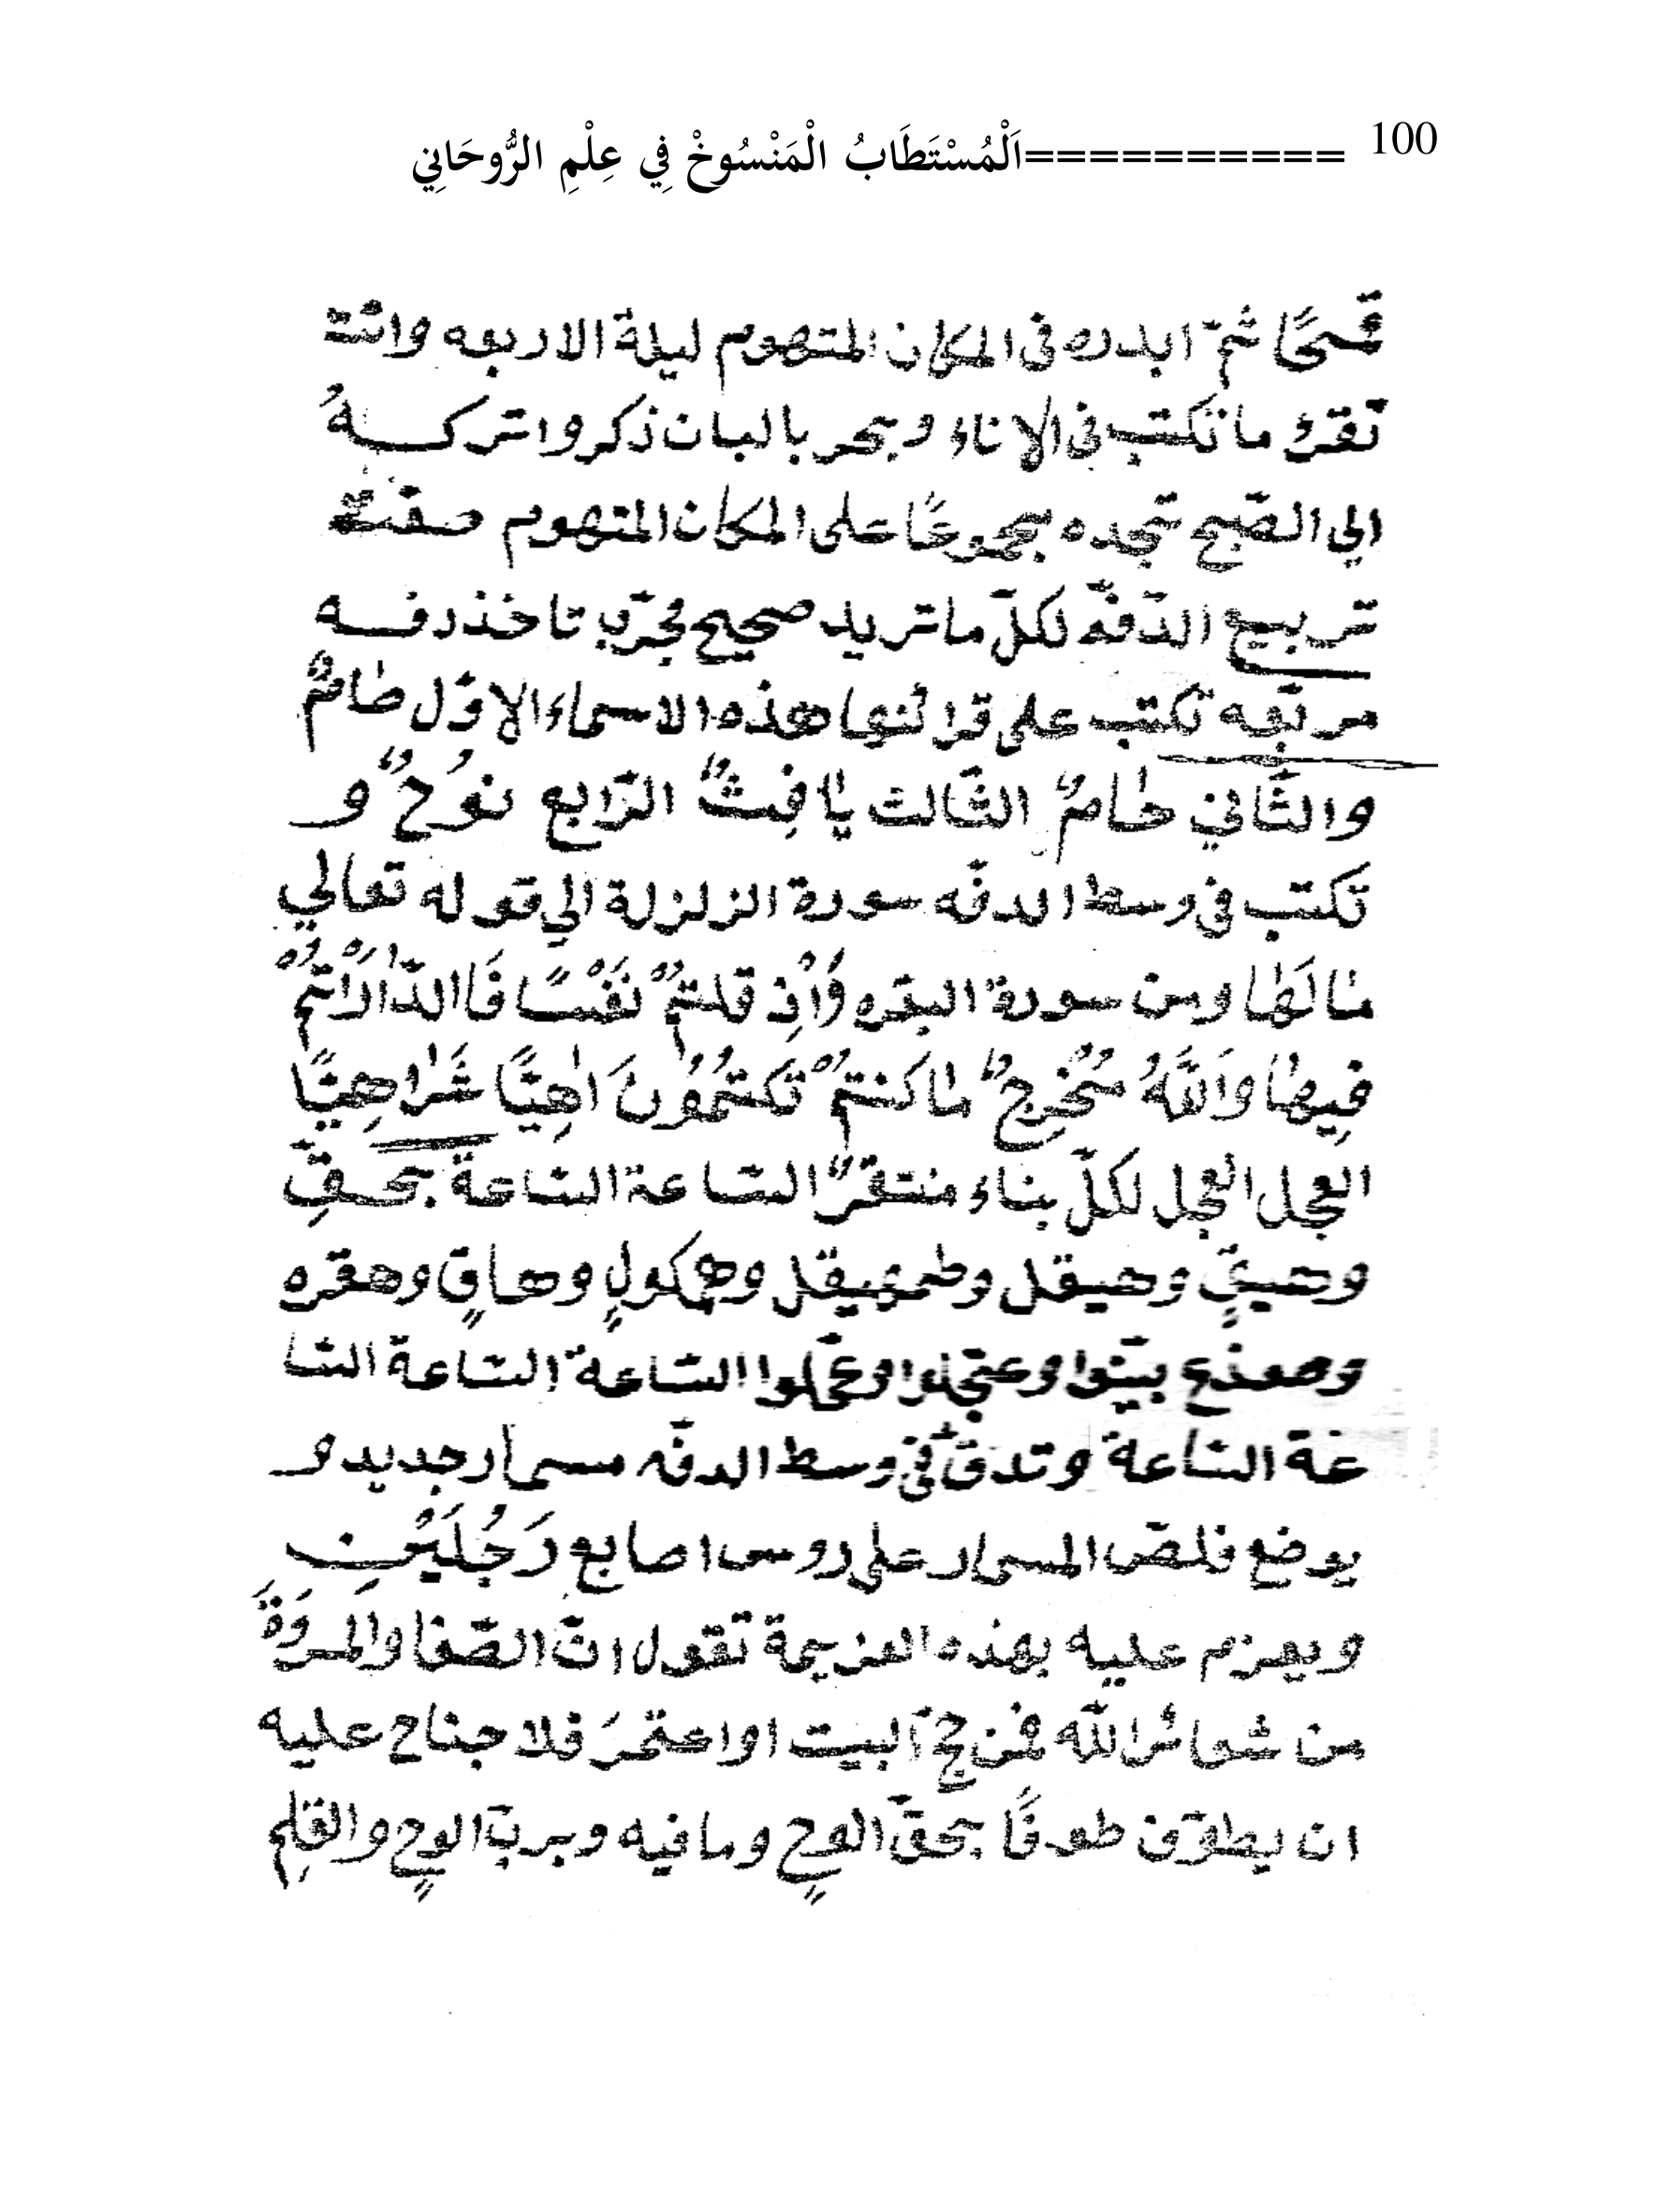 100 ==========اَلْمُسْتَطَابُ الْمَنْسُوخْ فِي عِلْمِ الرُّوحَانِي
قمحًا ثمّ ابدره فى المكان المتهوم ليلة الاربعه وانت
تقرء ما تكتب فى الاناء وبخر بالبان ذكر واتركهُ
الي الصّبح تجده مجموعًا على المكان المتهوم صفة
تربيع الدّفّه لكلّ ما تريد صحيح مجرّب تاخذ دفه
مربّعه تكتب على قرائنها هذه الاسماء الاوّل طامٌ
والثّاني حامٌ الثّالث يافِثٌ الرّابع نوُحٌ و
تكتب فى وسط الدفّه سورة الزلزلة الي قوله تعالي
مالَها ومن سورة البقره وَاِذ قلتمْ نَفْسًا فَاالدّاارَاْتمْ
فِيها وَاللّهُ مُخْرِجٌ ما كنتمْ تكتمُوُنَ اهِيًّا شَراهِيًّا
العجل العجل لكلّ بناء منتقرٌ السّاعة السّاعة بحقِّ
وهيقٍ وهيقل وطمهيقل وهمكولٍ وهاقٍ وهقره
وصعذع بيّنوا وعجّلوا وعجّلوا السّاعة السّاعة السّا
عة السّاعة وتدقّ فى وسط الدفّه مسمار جديد و
يوضع فلصّ المسمار على روس اصابع رَجُلَيْنِ
ويعزم عليه بهذه العزيمة تقول انّ الصّفا والمروَةَ
من شعائر اللّه فمن حجّ البيت او اعتمرَ فلا جناح عليه
ان يطوّف طوفًا بحقّ الوحٍ وما فيه وبربّ الوحٍ والقلِم